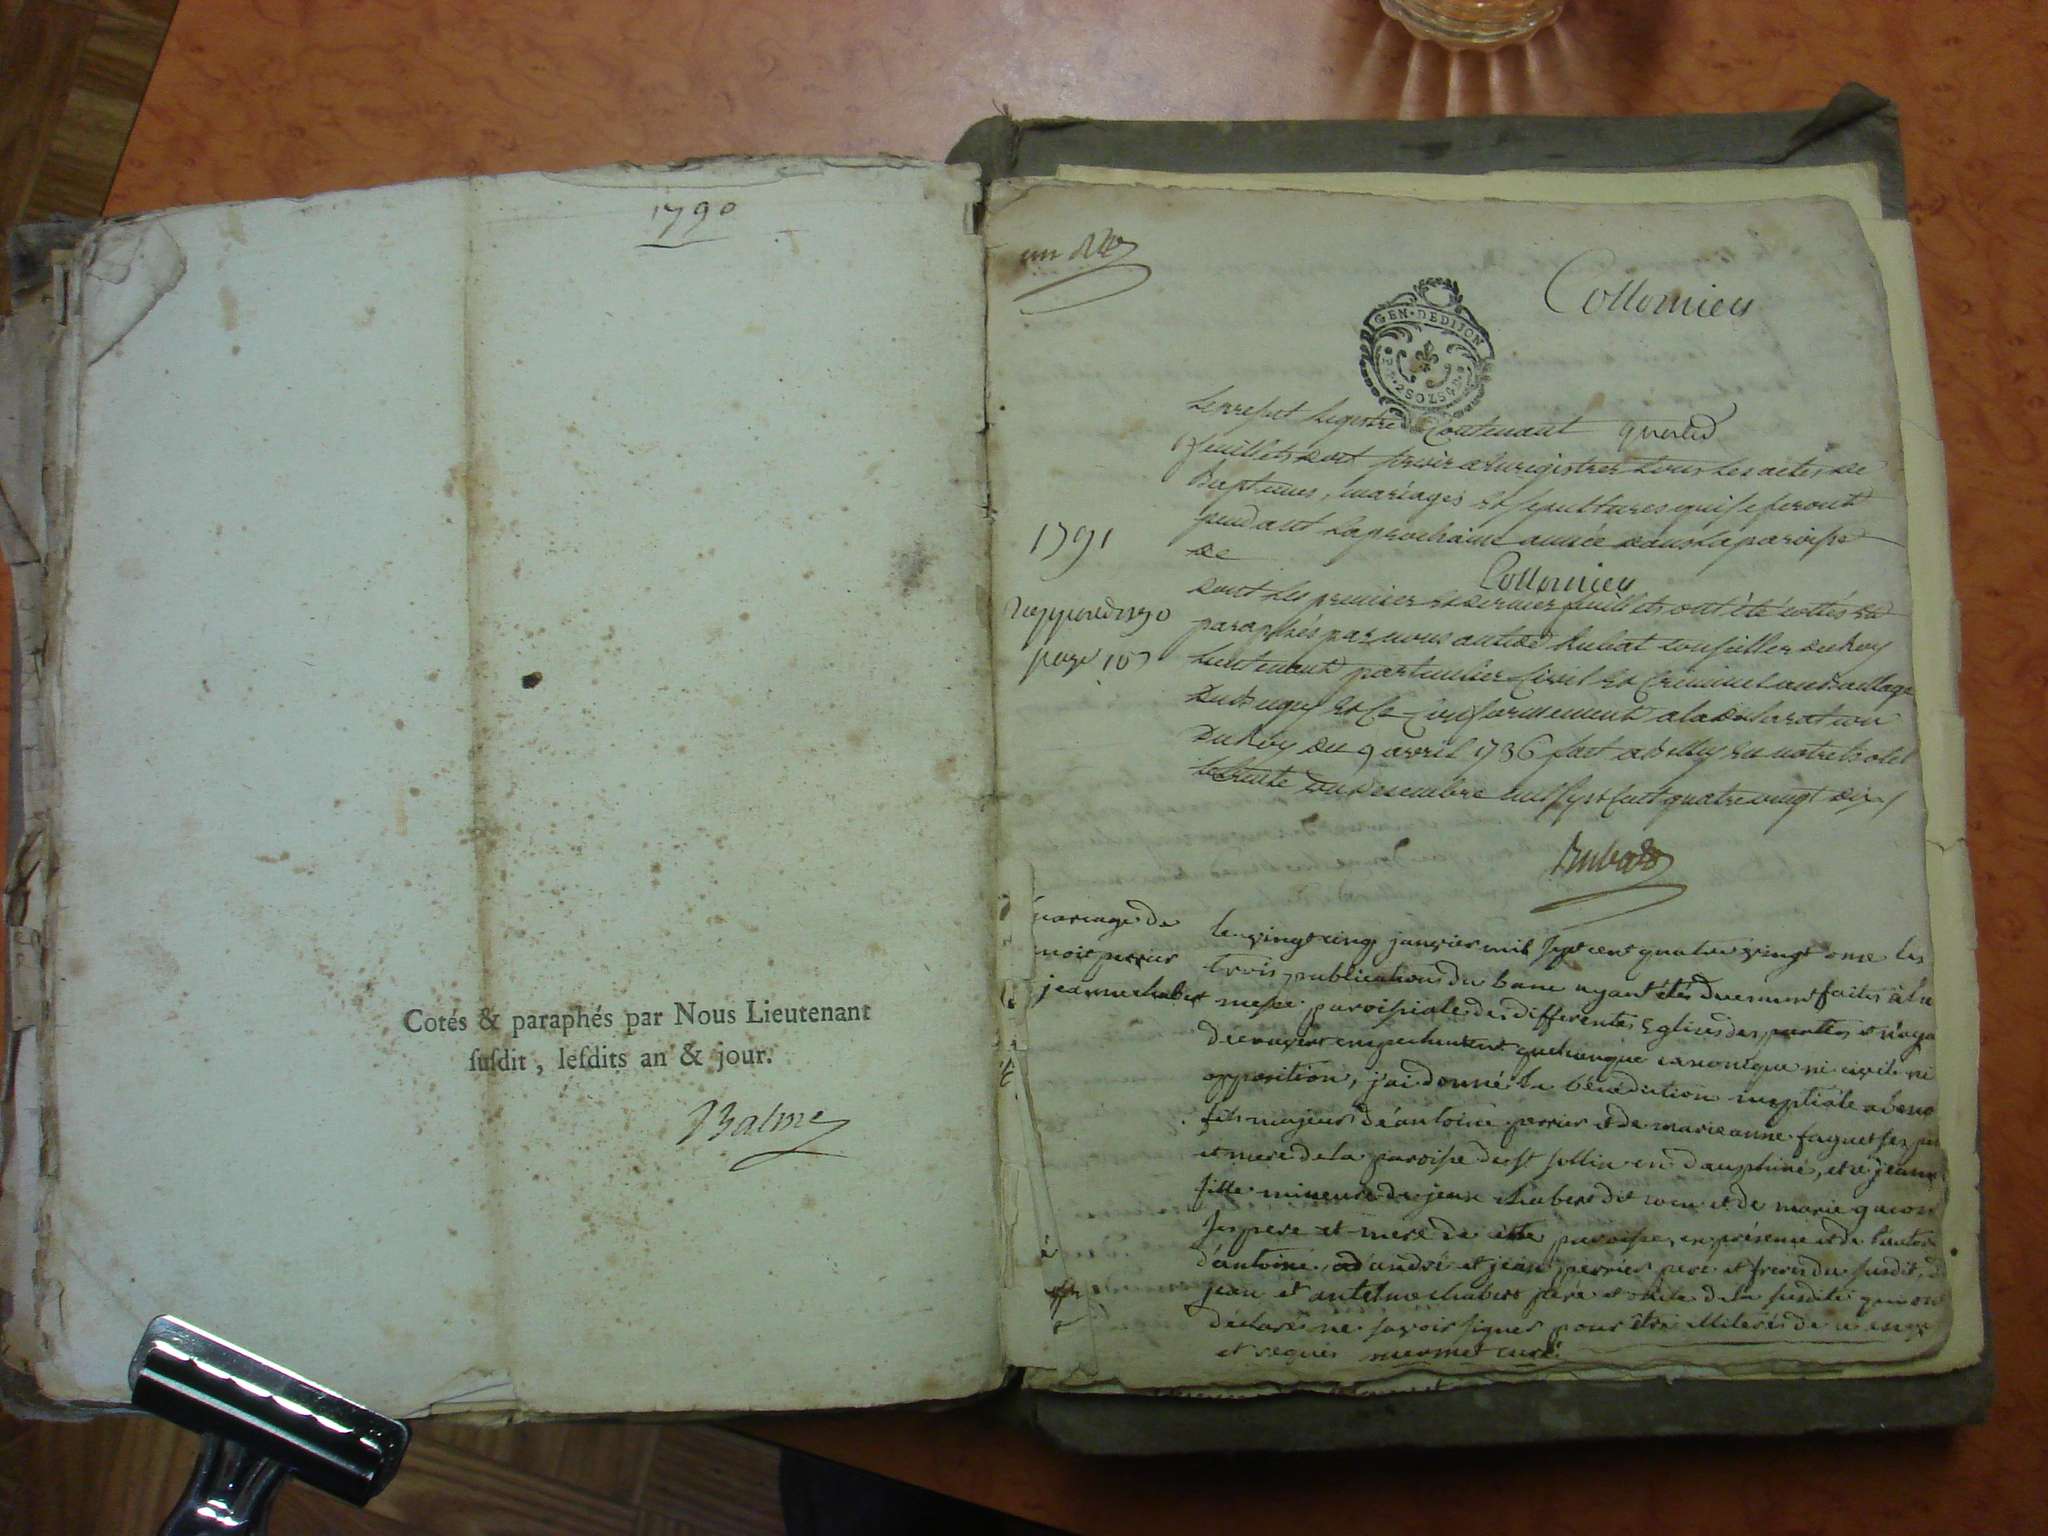 1790
Cotés & paraphés par Nous Lieutenant
ſuſdit, leſdits an & jour.
Balme
un
Collomieu
GEN·DE DIJON
2 SOLS
Le present Registre Contenant quatre
feuillets doit servir a Enregistrer tous les actes de
Baptemes, mariages et sepultures qui se feront
pendant la prochaine année dans la paroisse
de
Collomieu
dont les premier et dernier feuillets ont été cottés et
paraphés par nous Rubat conseiller du Roy
Lieutenant particulier Civil et Criminel au Bailliage
du Bugey et ce conformement a la declaration
du Roy du 9 avril 1736 fait a Belley en notre hotel
le trente un decembre mil sept cent quatre vingt dix
Rubat
1791
page 107
mariage de
noit perrier
jeanne chabert
le vingt cinq janvier mil sept cent quatre vingt onze les
trois publications du banc ayant étés duement faites à la
messe paroissiale des differentes Eglises des parties et n'aya
decouvert empechement quelconque canonique ni civil ni
opposition, j'ai donné la bénédiction nuptiale a beno
fils majeur d'antoine perrier et de marie anne faguet ses pe
et mere de la paroisse de st sollin en dauphiné, et a jeanne
fille mineure de jean chabert dit coin et de marie guion
ses pere et mere de cette paroisse, en présence et de l'autor
d'antoine, d'andré et jean perrier pere et freres du susdit, d
jean et antelme chabert père et oncle de la susdite qui on
déclaré ne savoir signer pour être illiterés de ce enqu
et requis mermet curé